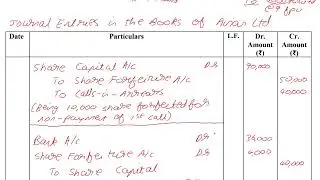 Journal Entries in the Books of Ltd
Date Particulars L.F. Dr. Amount (₹) Cr. Amount (₹)
Share Capital A/c Dr 90,000
To Share Forfeiture A/c 50,000
To Calls-in-Arrears 40000
(Being 10,000 share forfeited for
non-payment of 1st call)
Bank A/c Dr
Share Forfeiture A/c Dr 4000
To Share Capital 40,000